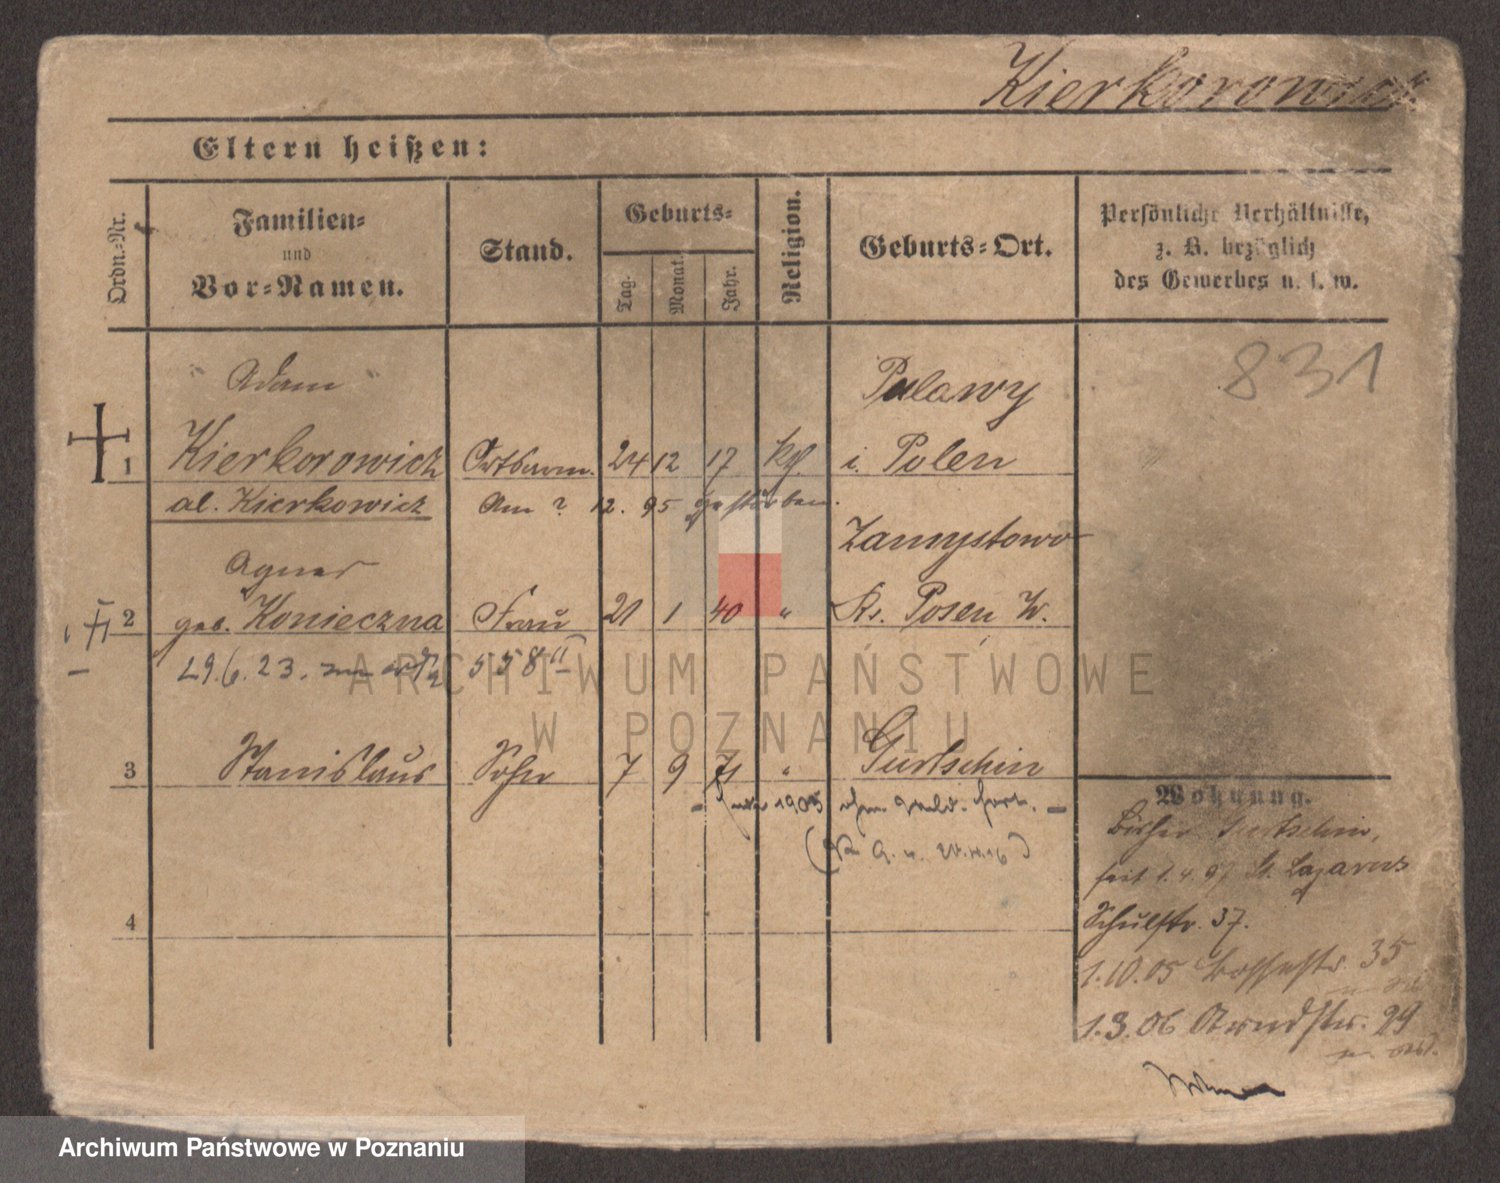 Kierkorowicz
Eltern heißen:
Ordn.-Nr.
Familien-
und
Vor-Namen.
Stand.
Geburts-
Tag.
Monat.
Jahr.
Religion.
Geburts-Ort.
Persönliche Verhältnisse,
z. B. bezüglich
des Gewerbes u. s. w.
831
" Adam "
Pulawy
1 Kierkorowicz Ortsarm. 24 12 17 kth. i. Polen
al. Kierkowicz Am ? 12. 95 gestorben.
Zamystowo
Agnes
2 geb. Konieczna Frau 21 1 40 " Kr. Posen W.
29.6.23. 558 II
3 Stanislaus Sohn 7 9 71 " Gurtschin
1905
4
Wohnung.
Bisher Gurtschin,
seit 1.4.97 St. Lazarus
Schulstr. 37.
1.10.05 35
1.3.06 29
ARCHIWUM PAŃSTWOWE
W POZNANIU
Archiwum Państwowe w Poznaniu